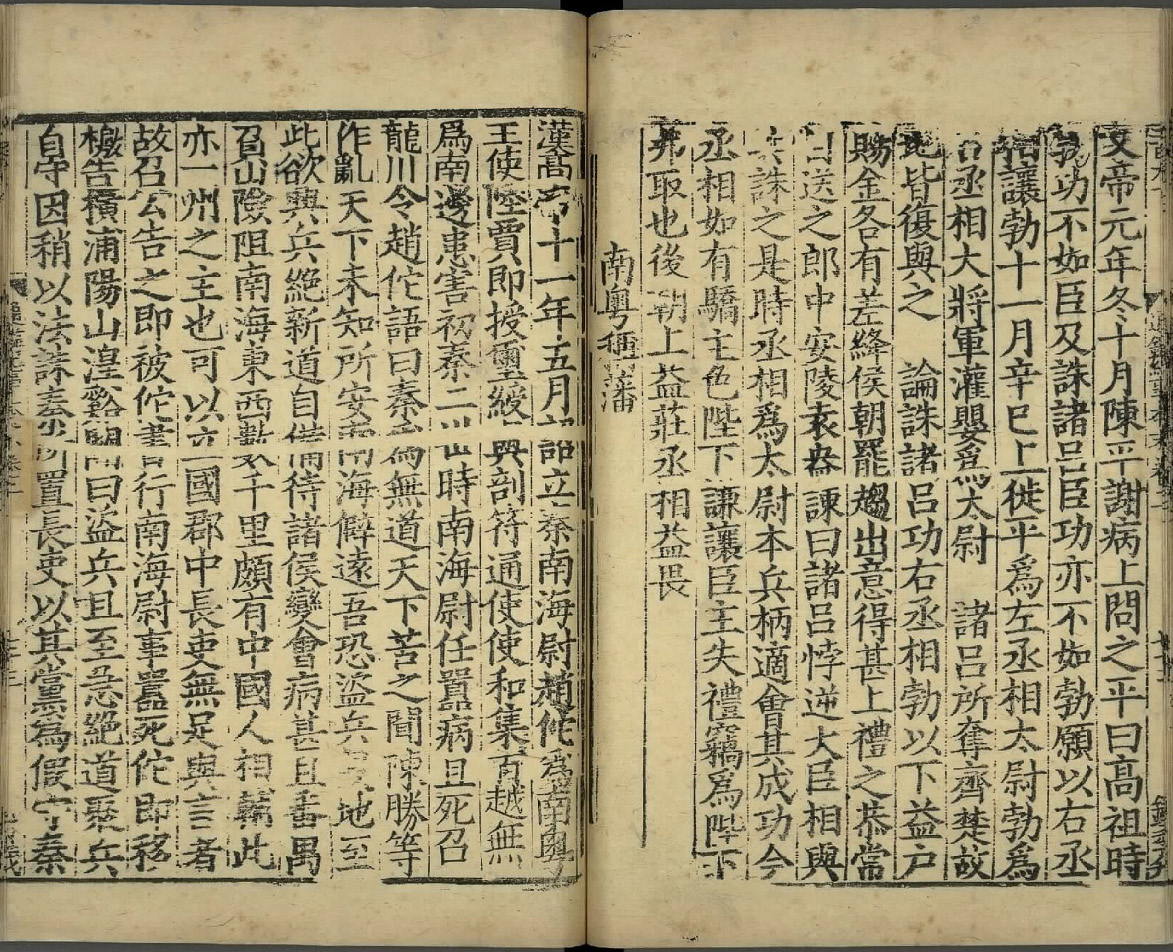 文帝元年冬十月陳平謝病上問之平曰高祖時
勃功不如臣及誅諸呂臣功亦不如勃願以右丞
相讓勃十一月辛巳上徙平爲左丞相太尉勃爲
右丞相大將軍灌嬰爲太尉 諸呂所奪齊楚故
地皆復與之 論誅諸呂功右丞相勃以下益户
賜金各有差絳侯朝罷趨出意得甚上禮之恭常
目送之郎中安陵袁盎諫曰諸呂悖逆大臣相與
共誅之是時丞相爲太尉本兵柄適會其成功今
丞相如有驕主色陛下謙讓臣主失禮竊爲陛下
弗取也後朝上益莊丞相益畏
南粵稱藩
漢高帝十一年五月詔立秦南海尉趙佗為南粵
王使陸賈即授璽綬與剖符通使使和集百越無
爲南邊患害初秦二世時南海尉任囂病且死召
龍川令趙佗語曰秦為無道天下苦之聞陳勝等
作亂天下未知所安南海僻遠吾恐盜兵 地至
此欲興兵絕新道自備待諸侯變會病甚且番禺
負山險阻南海東西數千里頗有中國人相輔此
亦一州之主也可以立國郡中長吏無足與言者
故召公告之即被佗書行南海尉事囂死佗即移
檄告橫浦陽山湟谿關曰盜兵且至急絕道聚兵
自守因稍以法誅秦所置長吏以其黨為假守秦